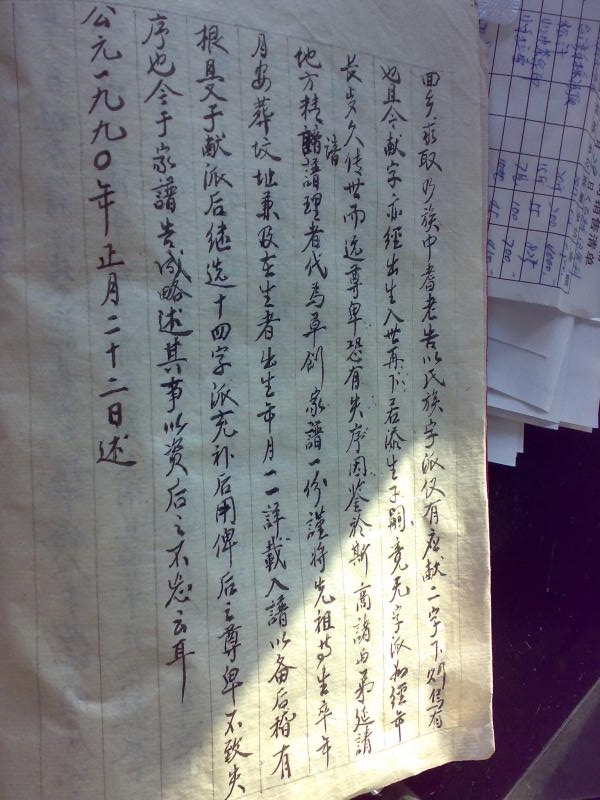 回乡采取乃族中耆老告以氏族字派仅有应献二字下则焉有
也且今献字亦经出生入世再下若添生子嗣竟无字派如经年
长岁久传世而远尊卑恐有失序因鉴於斯商诸与弟延請
地方精谙譜理者代为草创家譜一份謹将先祖等生卒年
月安葬坟址兼及在生者出生年月一一詳載入譜以备后稽有
根且又于献派后继选十四字派充补后用俾后之尊卑不致失
序也今于家譜告成略述其事以资后之不忘云耳
公元一九九〇年正月二十二日述